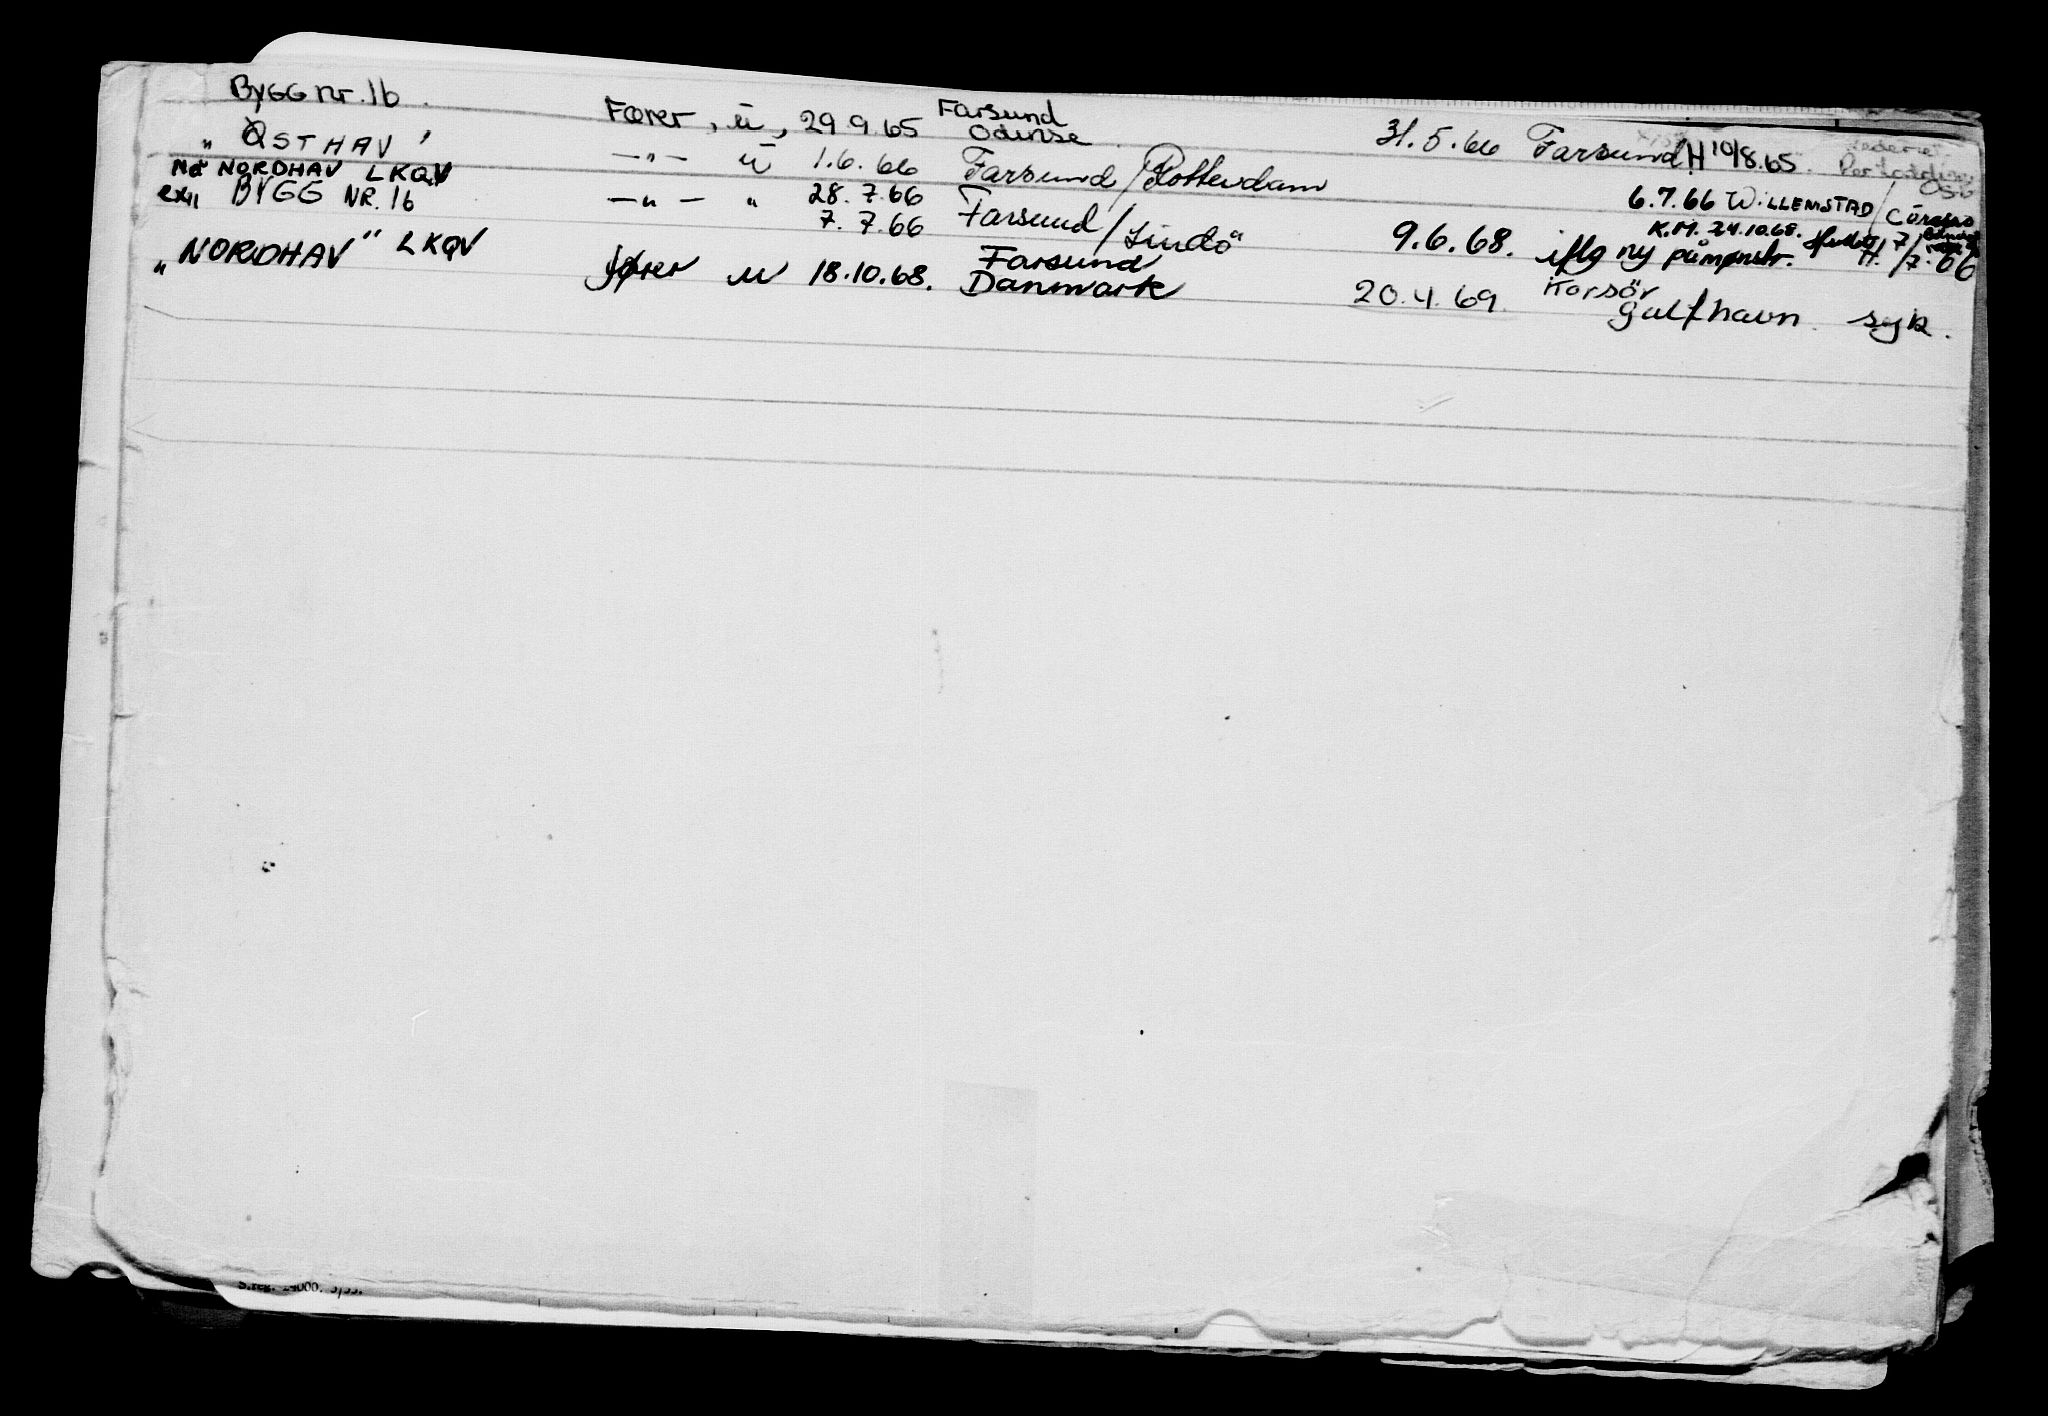 BYGG nr. 16.
"ØSTHAV" Fører, u, 29.9.65 Farsund Odense 31.5.66 Farsund H 10/8.65.
Nå NORDHAV LKQV —"— u 1.6.66 Farsund / Rotterdam 6.7.66 WILLEMSTAD / Curacao
ex" BYGG NR. 16 —"— " 28.7.66 Farsund / Lindö K.M. 24.10.68.
7.7.66 9.6.68. iflg ny påmønstr. H. 7/7.66
"NORDHAV" LKQV fører u 18.10.68. Farsund Danmark 20.4.69. Korsör Gulfhavn syk.
S.reg. 24000.